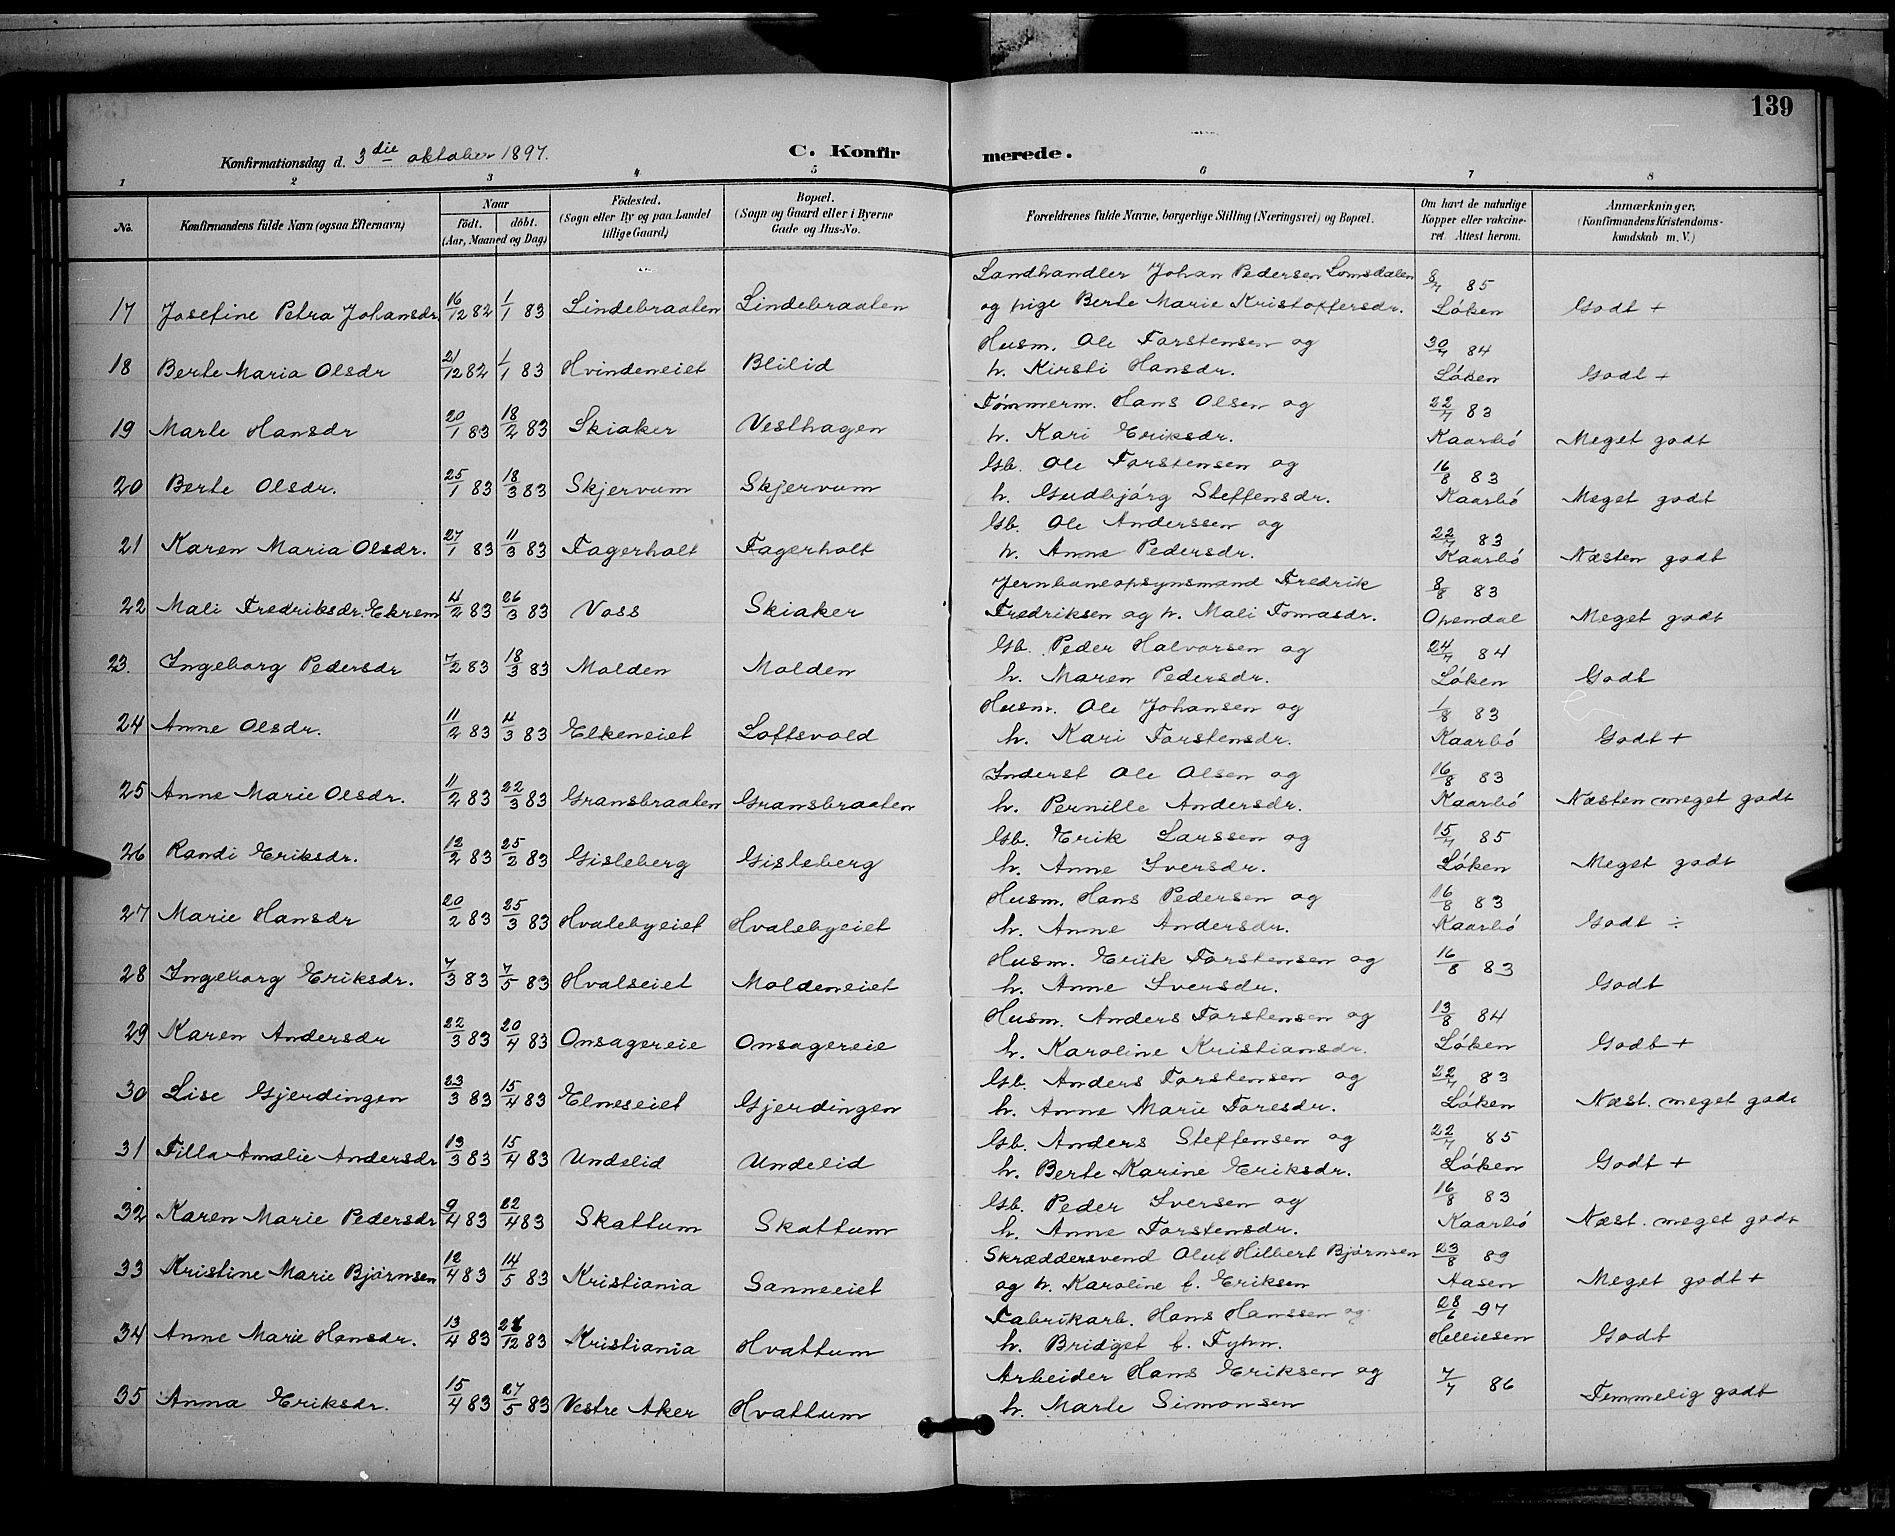 139
Konfirmationsdag d. 3die oktober 1897.
C. Konfirmerede.
1 2 3 4 5 6 7 8
No. Konfirmandens fulde Navn (ogsaa Efternavn) Naar födt. döbt. (Aar, Maaned og Dag) Födested. (Sogn eller By og paa Landet tillige Gaard) Bopæl. (Sogn og Gaard eller i Byerne Gade og Hus-No. Forældrenes fulde Navne, borgerlige Stilling (Næringsvei) og Bopæl. Om havt de naturlige Kopper eller vakcineret Attest herom. Anmærkninger, (Konfirmandens Kristendomskundskab m. V.)
Landhandler Johan Pedersen Lomsdalen 8/7 85
17 Josefine Petra Johansdr 16/12 82 1/1 83 Lindebraaten Lindebraaten og pige Berte Marie Kristoffersdr. Løken Godt +
Husm. Ole Torstensen og 30/7 84
18 Berte Maria Olsdr 21/12 82 1/1 83 Hvindeneiet Blilid h. Kirsti Hansdr. Løken Godt +
Tømmerm. Hans Olsen og 22/7 83
19 Marte Hansdr 20/1 83 18/2 83 Skiaker Vesthagen h. Kari Eriksdr. Kaarbó Meget godt
Gb. Ole Torstensen og 16/8 83
20 Berte Olsdr. 25/1 83 18/3 83 Skjervum Skjervum h. Gudbjórg Steffensdr. Kaarbó Meget godt
Gb. Ole Anderssen og 22/7 83
21 Karen Maria Olsdr. 27/1 83 11/3 83 Fagerholt Fagerholt h. Anne Pedersdr. Kaarbó Næsten godt
Jernbaneopsynsmand Fredrik 8/8 83
22 Mali Fredriksdr. Ekrem 4/2 83 26/3 83 Voss Skiaker Fredriksen og h. Mali Tomasdr. Opendal Meget godt
Gb. Peder Halvorsen og 24/7 84
23. Ingeborg Pedersdr 7/2 83 18/3 83 Molden Molden h. Maren Pedersdr. Løken Godt
Husm. Ole Johansen og 1/8 83
24 Anne Olsdr. 11/2 83 4/3 83 Elkeneiet Loftsvold h. Kari Torstensdr. Kaarbó Godt +
Inderst Ole Olsen og 16/8 83
25 Anne Marie Olsdr. 11/2 83 22/3 83 Gransbraaten Gransbraaten h. Pernille Andersdr. Kaarbó Næsten meget godt
Gb. Erik Larssen og 15/7 85
26 Randi Eriksdr. 12/2 83 25/2 83 Gisleberg Gisleberg h. Anne Iversdr. Løken Meget godt
Husm. Hans Pedersen og 16/8 83
27 Marie Hansdr 20/2 83 25/3 83 Hvalebyeiet Hvalebyeiet h. Anne Andersdr. Kaarbó Godt ÷
Husm. Erik Torstensen og 16/8 83
28 Ingeborg Eriksdr. 7/3 83 7/5 83 Hvalseiet Moldeneiet h. Anne Iversdr. Godt
Husm. Anders Torstensen og 13/8 84
29 Karen Andersdr 22/3 83 20/4 83 Onsagereie Onsagereie h. Karoline Kristiansdr. Løken Godt +
Gb. Anders Torstensen og 22/7 83
30 Lise Gjerdingen 23/3 83 15/4 83 Elneseiet Gjerdingen h. Anne Marie Toresdr. Løken Næst. meget godt
Gb. Anders Steffensen og 22/7 85
31 Tilla Amalie Andersdr 13/3 83 15/4 83 Undelid Undelid h. Berte Karine Eriksdr. Løken Godt +
Gb. Peder Iversen og 16/8 83
32 Karen Marie Pedersdr 9/4 83 22/4 83 Skattum Skattum h. Anne Torstensdr. Kaarbó Næst. meget godt
Skræddersvend Oluf Hilbert Bjørnsen 23/8 89
33 Kristine Marie Bjørnsen 12/4 83 14/5 83 Kristiania Sanneeiet og h. Karoline f. Eriksen Aasen Meget godt +
Fabrikarb. Hans Hanssen og 28/6 97
34 Anne Marie Hansdr. 13/4 83 /12 83 Kristiania Hvattum h. Bridget f. Fyhn. Helliesen Godt
Arbeider Hans Eriksen og 7/7 86
35 Anna Eriksdr. 15/4 83 27/5 83 Vestre Aker Hvattum h. Marte Simonsen Temmelig godt